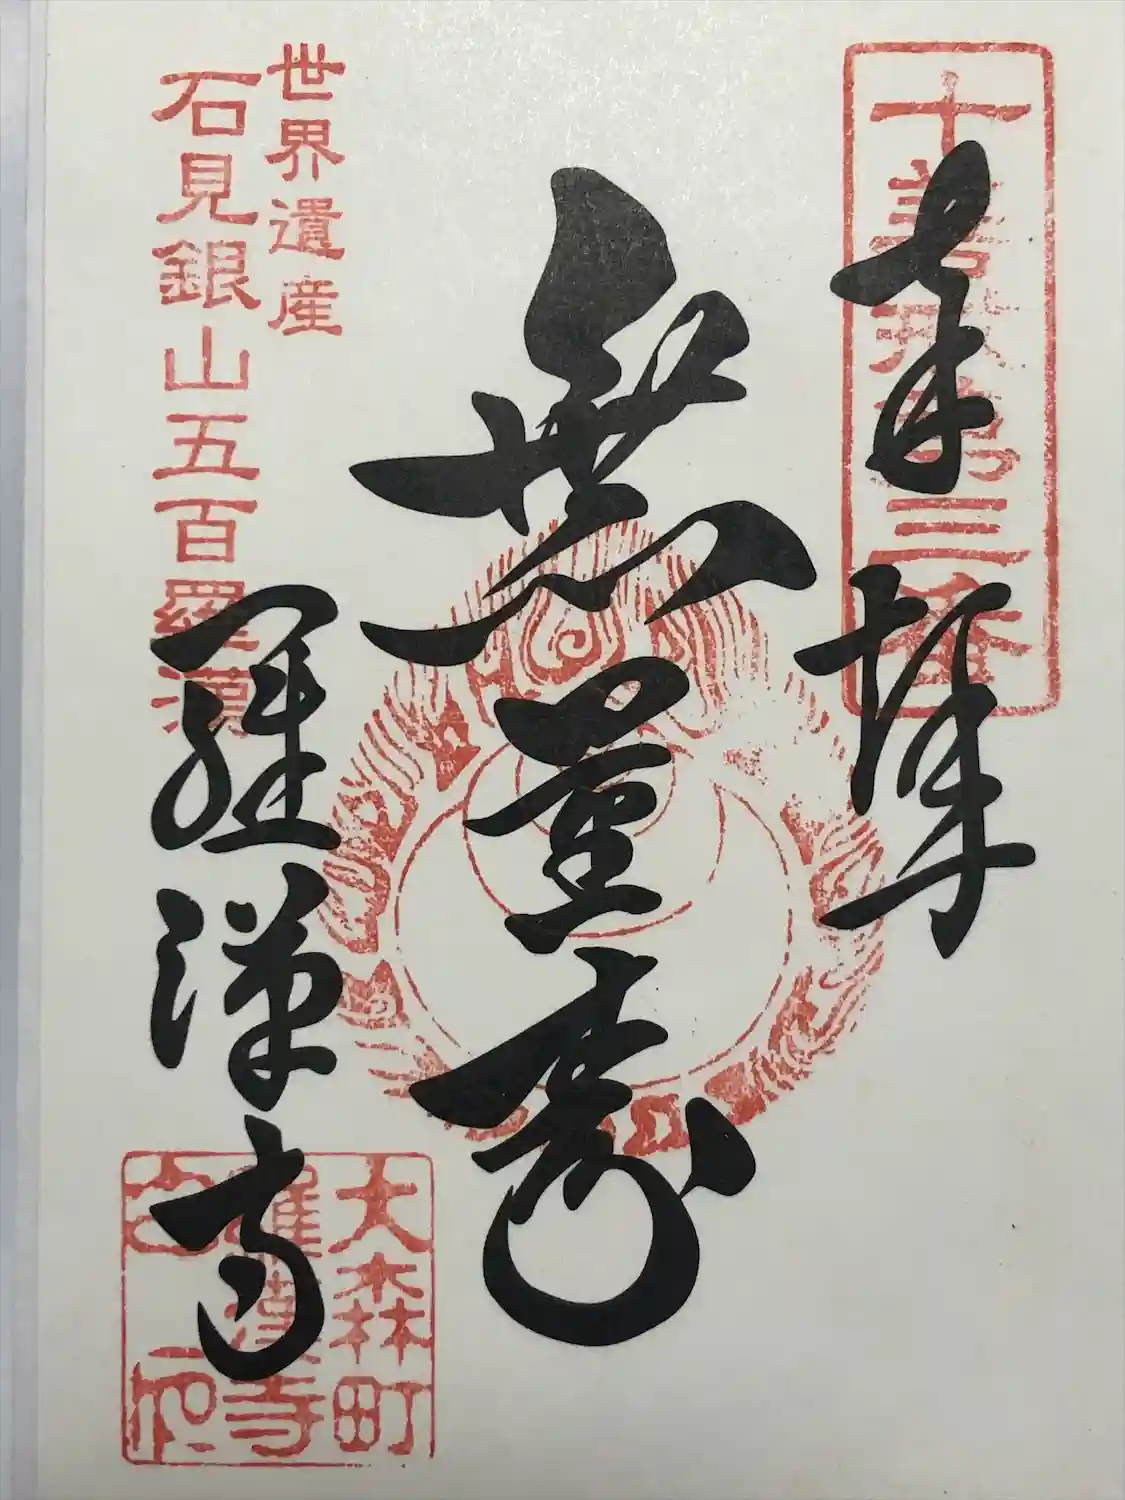 奉拝
十善霊場第三番
無量寿
世界遺産
石見銀山五百羅漢
羅漢寺
大森町
羅漢寺
之印